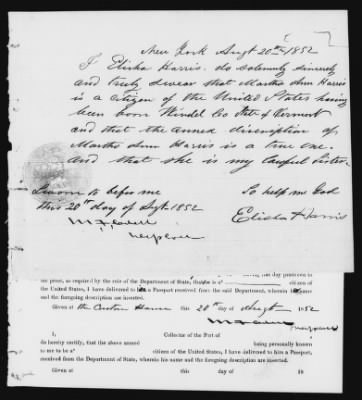 New York Sugt 20th 1852
I Elisha Harris do solemnly sincerely
and truly swear that Martha Ann Harris
is a citizen of the United States having
been born Windel Co State of Vermont
and that the annexed discription of
Martha Ann Harris is a true one.
and that she is my lawful Sister.
So help me God
Sworn to before me
this 20th day of Sugt 1852
Elisha Harris
the press, as required by the rule of the Department of State, that he is a citizen of
the United States, I have delivered to him a Passport received from the said Department, wherein his name
and the foregoing description are inserted.
Given at the Custom House this 20th day of Augst 1852
I Collector of the Port of
do hereby certify, that the above named being personally known
to me to be a citizen of the United States, I have delivered to him a Passport,
received from the Department of State, wherein his name and the foregoing description are inserted.
Given at this day of 18